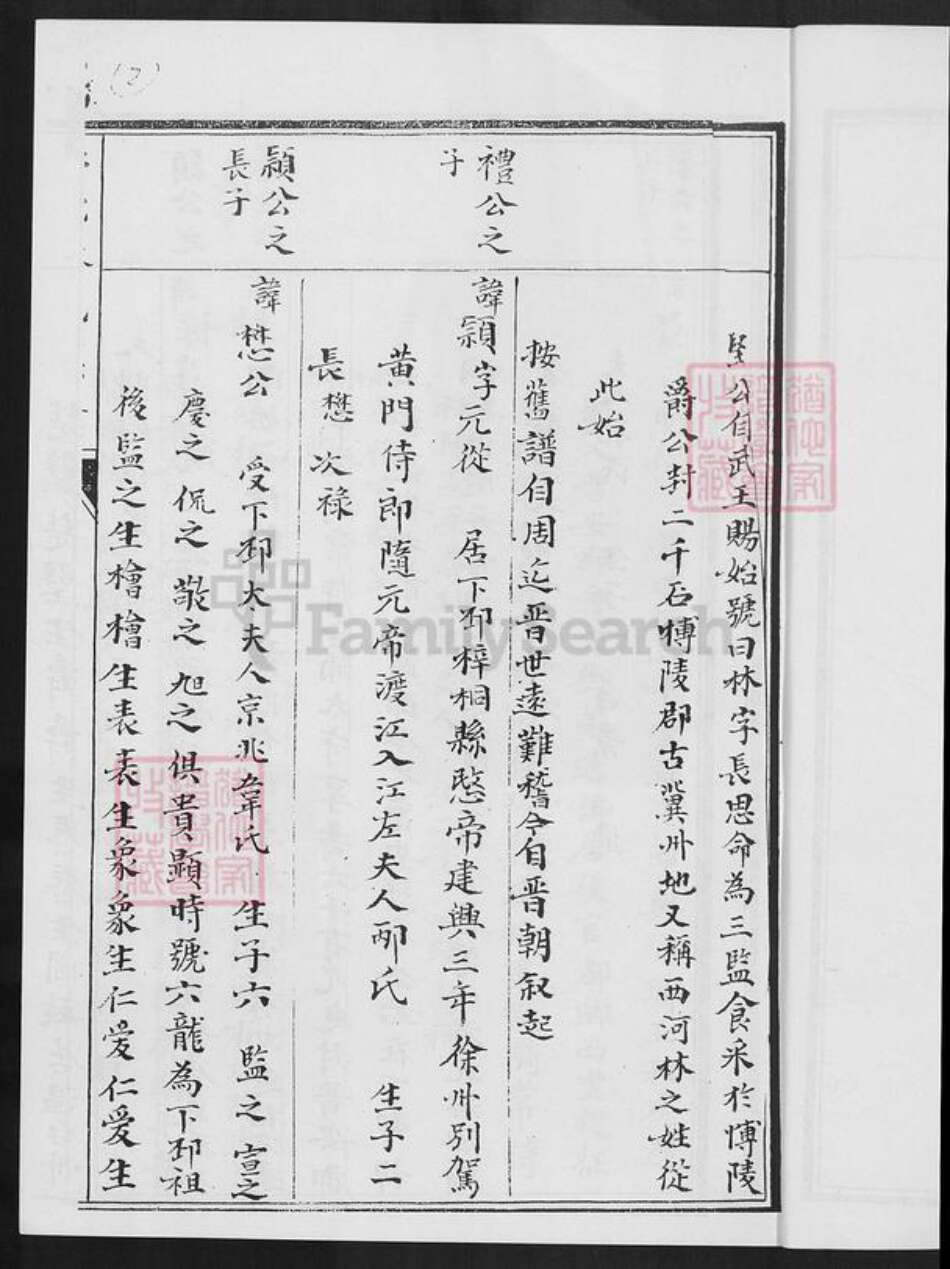 (2)
堅公自武王賜始號曰林字長思命為三監食采於博陵
爵公封二千石博陵郡古冀州地又稱西河林之姓從
此始
按舊譜自周迄晋世遠難稽今自晋朝叙起
禮公之
子
諱穎字元從 居下邳梓桐縣愍帝建興三年徐州別駕
黃門侍郎隨元帝渡江入江左夫人邴氏 生子二
長懋 次祿
穎公之
長子
諱懋公 受下邳太夫人京兆韋氏 生子六 監之 宣之
慶之 侃之 敬之 旭之俱貴顯時號六龍為下邳祖
後監之生檜檜生表表生象象生仁爱仁爱生
FamilySearch